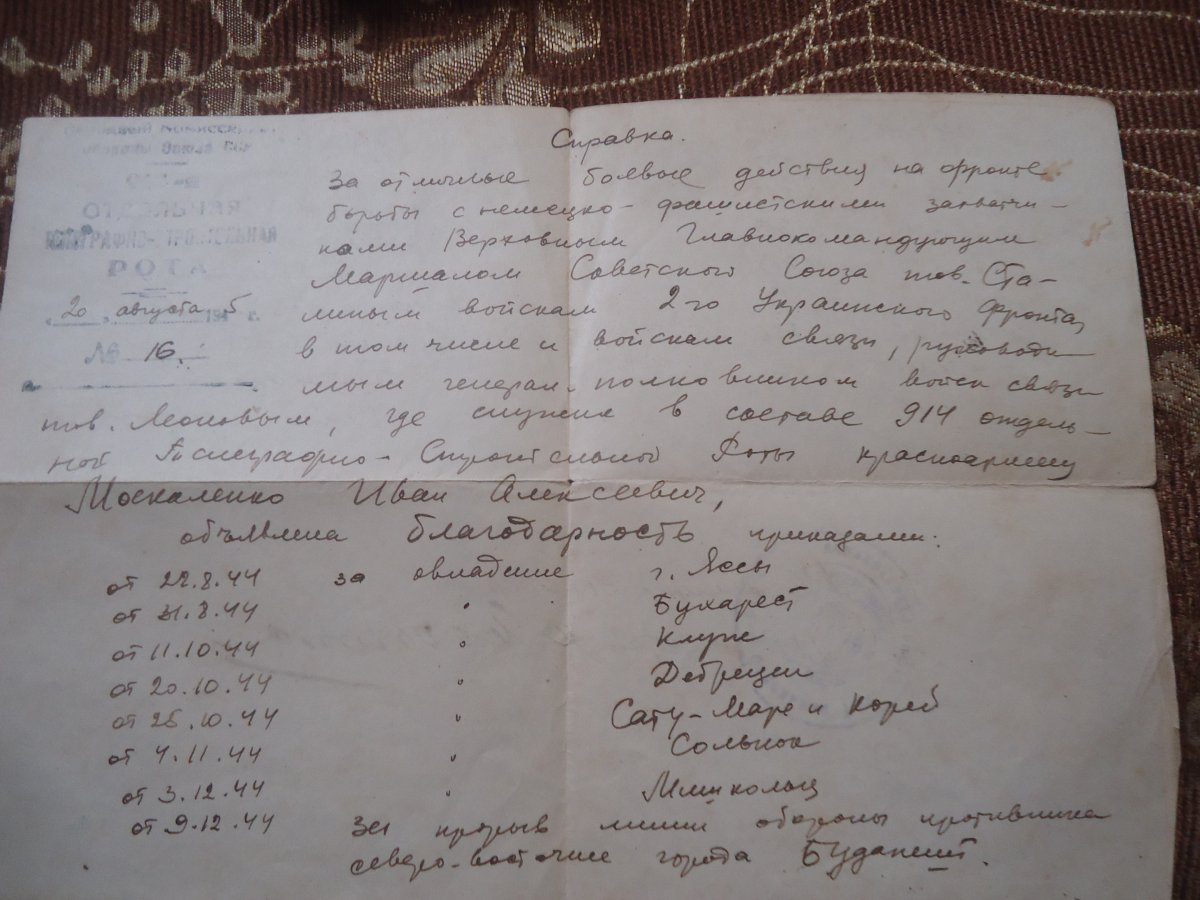 Справка.
За отличные боевые действия на фронте
борьбы с немецко-фашистскими захватчи-
ками Верховным Главнокомандующим
Маршалом Советского Союза тов. Ста-
линым войскам 2-го Украинского Фронта,
в том числе и войскам связи, руководи-
мым генерал-полковником войск связи
тов. Леоновым, где служил в составе 914 отдель-
ной Телеграфно-Строительной Роты красноармеец
Москаленко Иван Алексеевич,
объявлена благодарность приказами:
от 22.8.44 за овладение г. Яссы
от 31.8.44 " Бухарест
от 11.10.44 " Клуж
от 20.10.44 " Дебрецен
от 25.10.44 " Сату-Маре и Карей
от 4.11.44 " Сольнок
от 3.12.44 " Мишкольц
от 9.12.44 За прорыв линии обороны противника
северо-восточнее города Будапешт.
РОТА
20 августа 5 г.
№ 16.